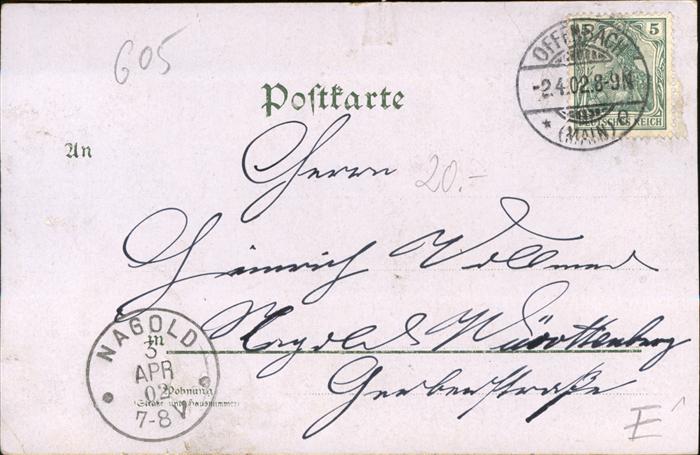 605
5
DEUTSCHES REICH
OFFENBACH
-2.4.02.8-9N
* (MAIN)
Postkarte
An
Herrn
20.-
Heinrich Vollmer
NAGOLD
in
Nagold Württemberg
3
APR
02
7-8V
Wohnung
(Straße und Hausnummer)
Gerberstraße
E